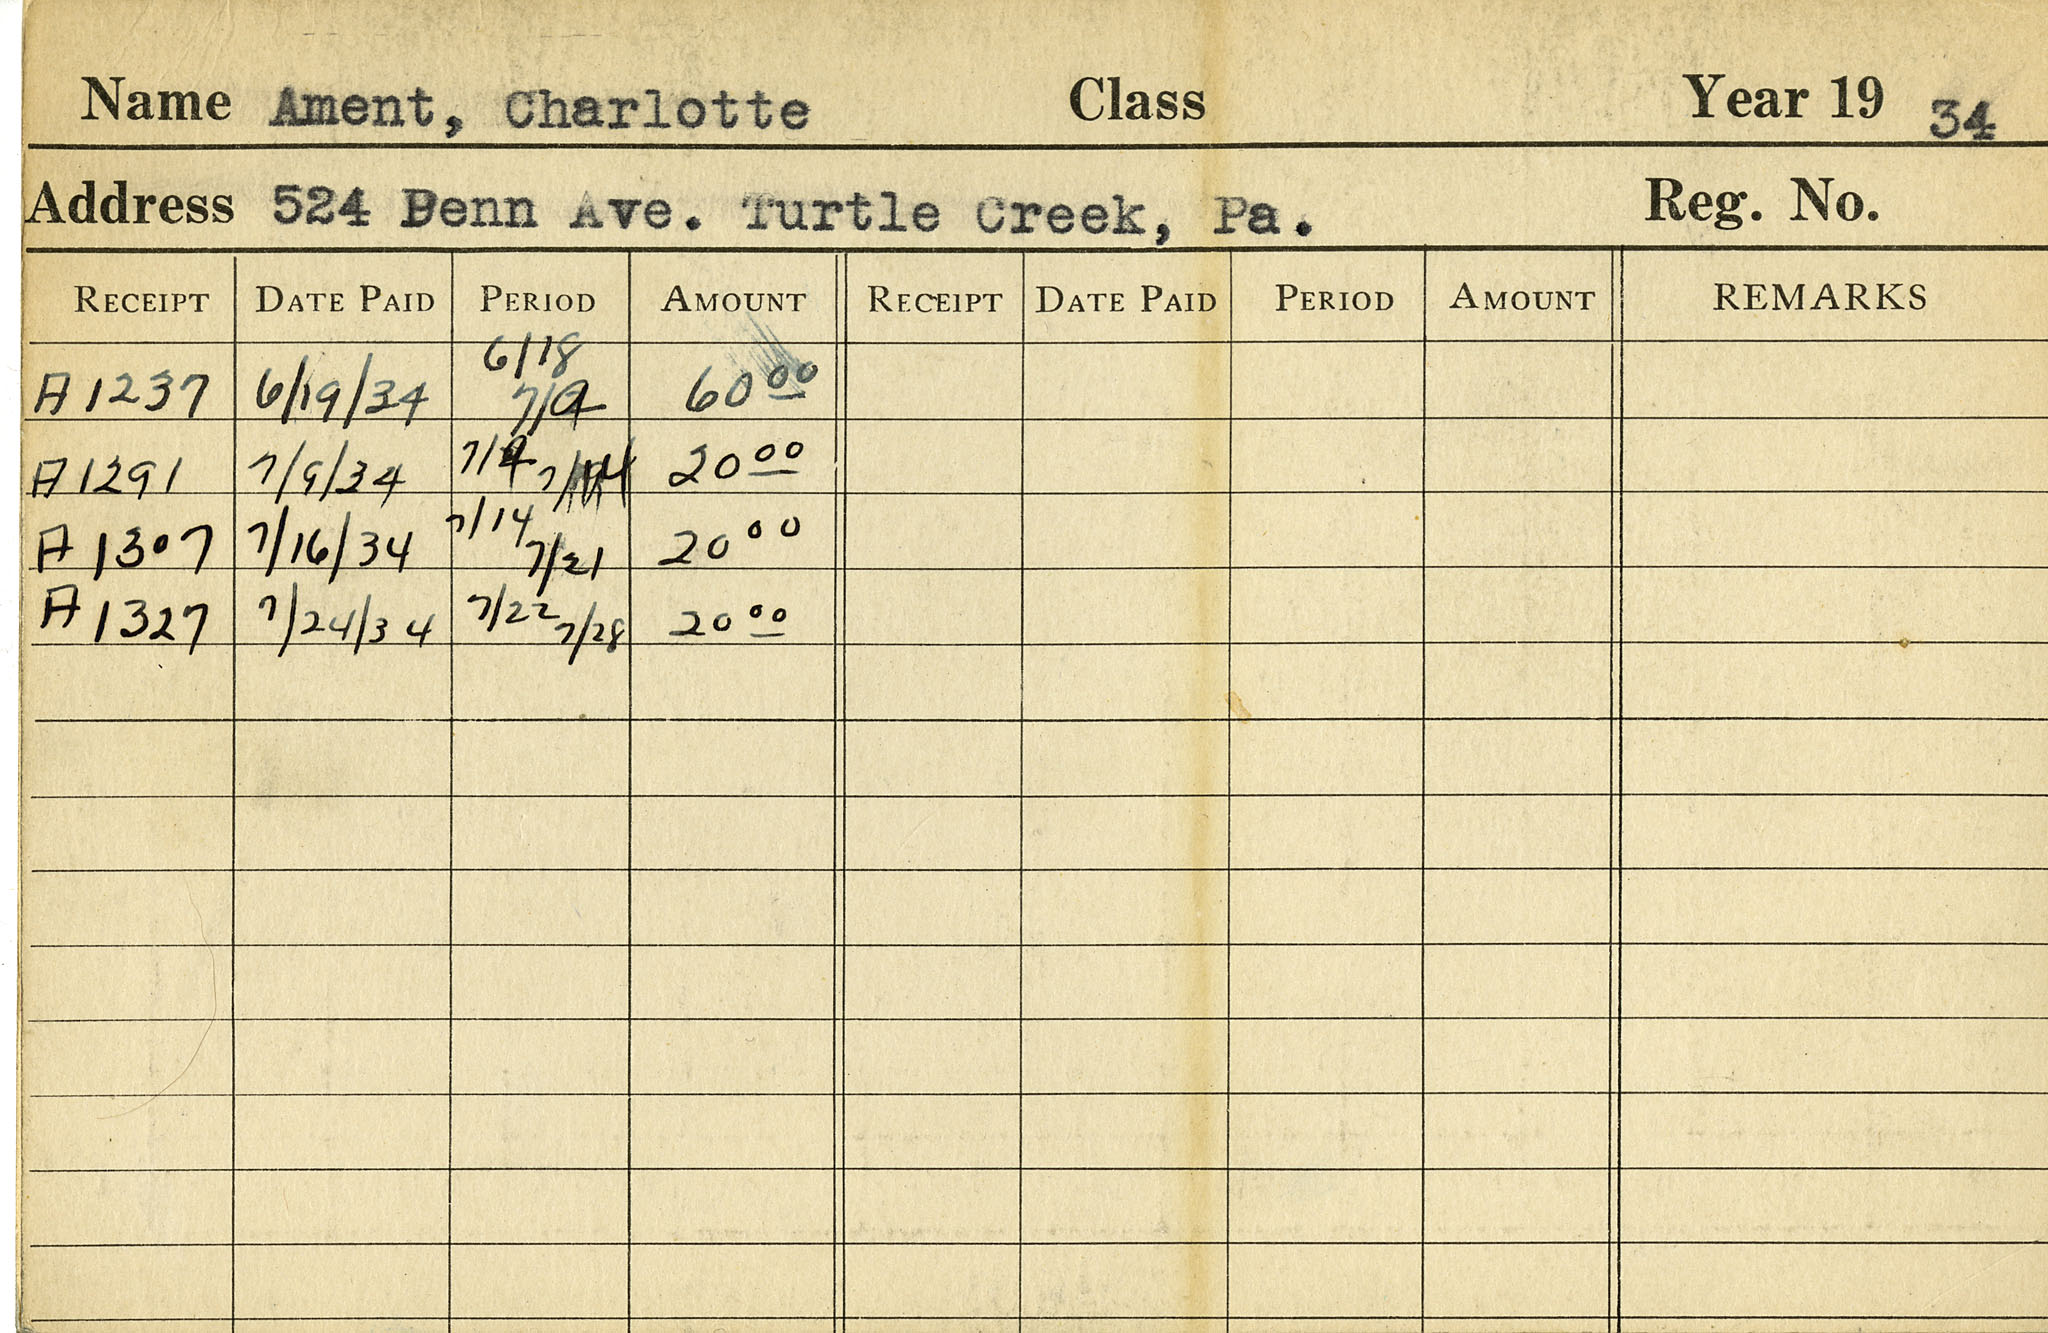 Name Ament, Charlotte Class Year 19 34
Address 524 Penn Ave. Turtle Creek, Pa. Reg. No.
RECEIPT DATE PAID PERIOD AMOUNT RECEIPT DATE PAID PERIOD AMOUNT REMARKS
6/18
A 1237 6/19/34 7/9 60 00
A 1291 7/9/34 7/9 7/14 20 00
A 1307 7/16/34 7/14 7/21 20 00
A 1327 7/24/34 7/22 7/28 20 00